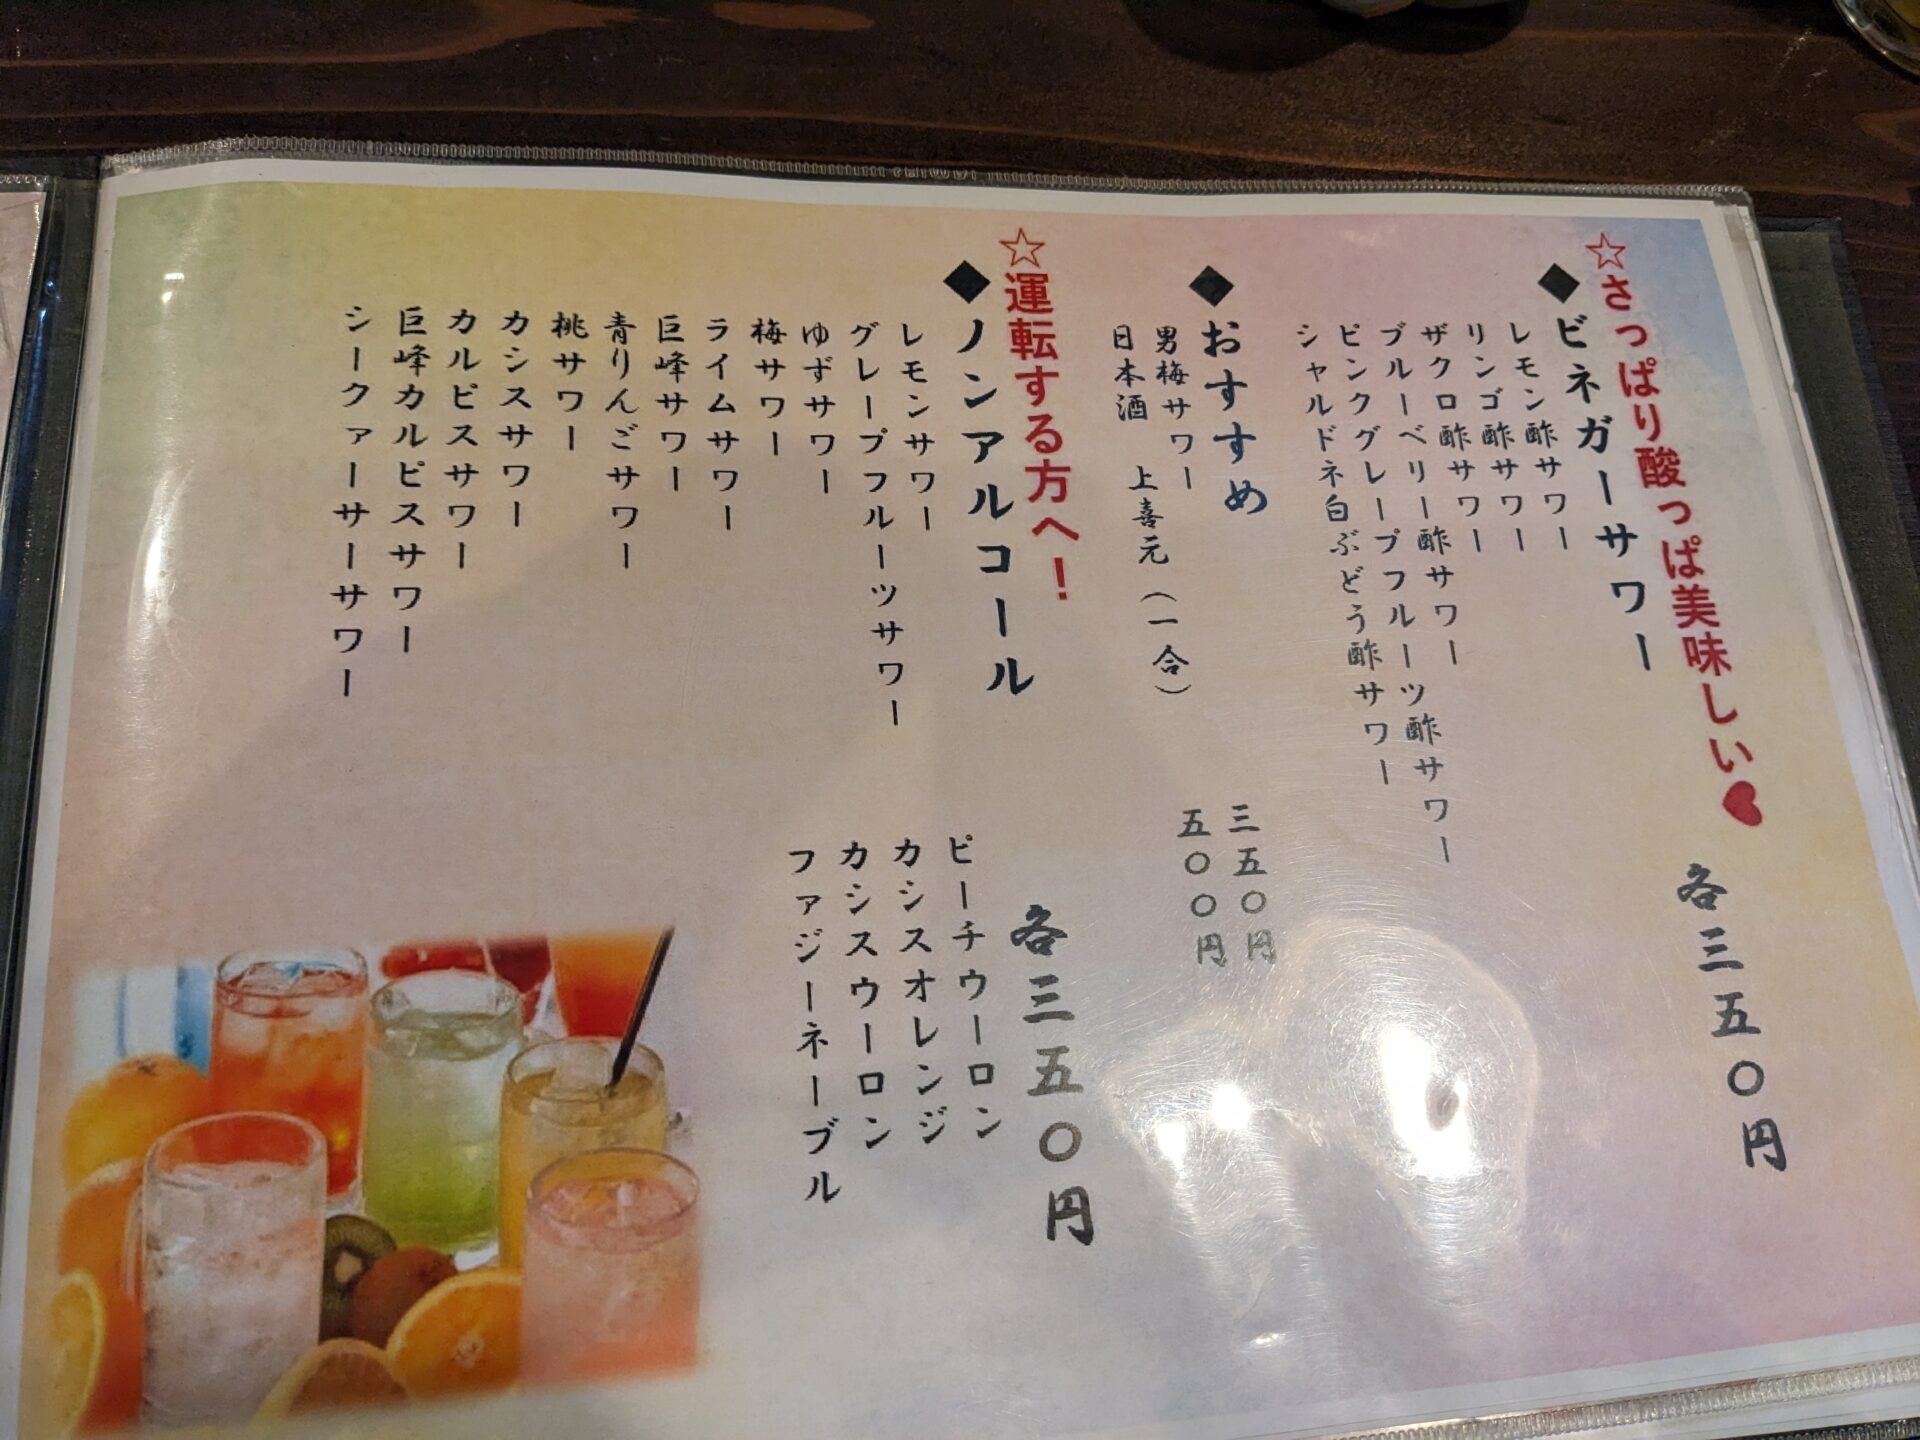 ☆さっぱり酸っぱ美味しい♥
◆ビネガーサワー
各三五〇円
レモン酢サワー
リンゴ酢サワー
ザクロ酢サワー
ブルーベリー酢サワー
ピンクグレープフルーツ酢サワー
シャルドネ白ぶどう酢サワー
◆おすすめ
男梅サワー 三五〇円
日本酒 上喜元（一合） 五〇〇円
☆運転する方へ！
◆ノンアルコール
各三五〇円
レモンサワー
グレープフルーツサワー
ゆずサワー
梅サワー
ライムサワー
巨峰サワー
青りんごサワー
桃サワー
カシスサワー
カルピスサワー
巨峰カルピスサワー
シークァーサーサワー
ピーチウーロン
カシスオレンジ
カシスウーロン
ファジーネーブル